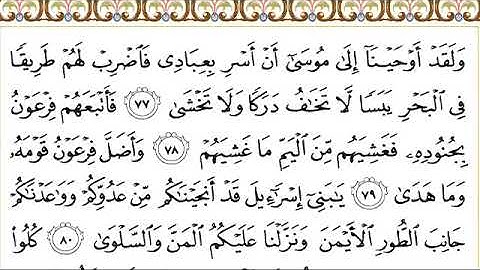 وَلَقَدْ أَوْحَيْنَآ إِلَىٰ مُوسَىٰٓ أَنْ أَسْرِ بِعِبَادِى فَٱضْرِبْ لَهُمْ طَرِيقًا
فِى ٱلْبَحْرِ يَبَسًا لَّا تَخَٰفُ دَرَكًا وَلَا تَخْشَىٰ ٧٧ فَأَتْبَعَهُمْ فِرْعَوْنُ
بِجُنُودِهِۦ فَغَشِيَهُم مِّنَ ٱلْيَمِّ مَا غَشِيَهُمْ ٧٨ وَأَضَلَّ فِرْعَوْنُ قَوْمَهُۥ
وَمَا هَدَىٰ ٧٩ يَٰبَنِىٓ إِسْرَٰٓءِيلَ قَدْ أَنجَيْنَٰكُم مِّنْ عَدُوِّكُمْ وَوَٰعَدْنَٰكُمْ
جَانِبَ ٱلطُّورِ ٱلْأَيْمَنَ وَنَزَّلْنَا عَلَيْكُمُ ٱلْمَنَّ وَٱلسَّلْوَىٰ ٨٠ كُلُوا۟